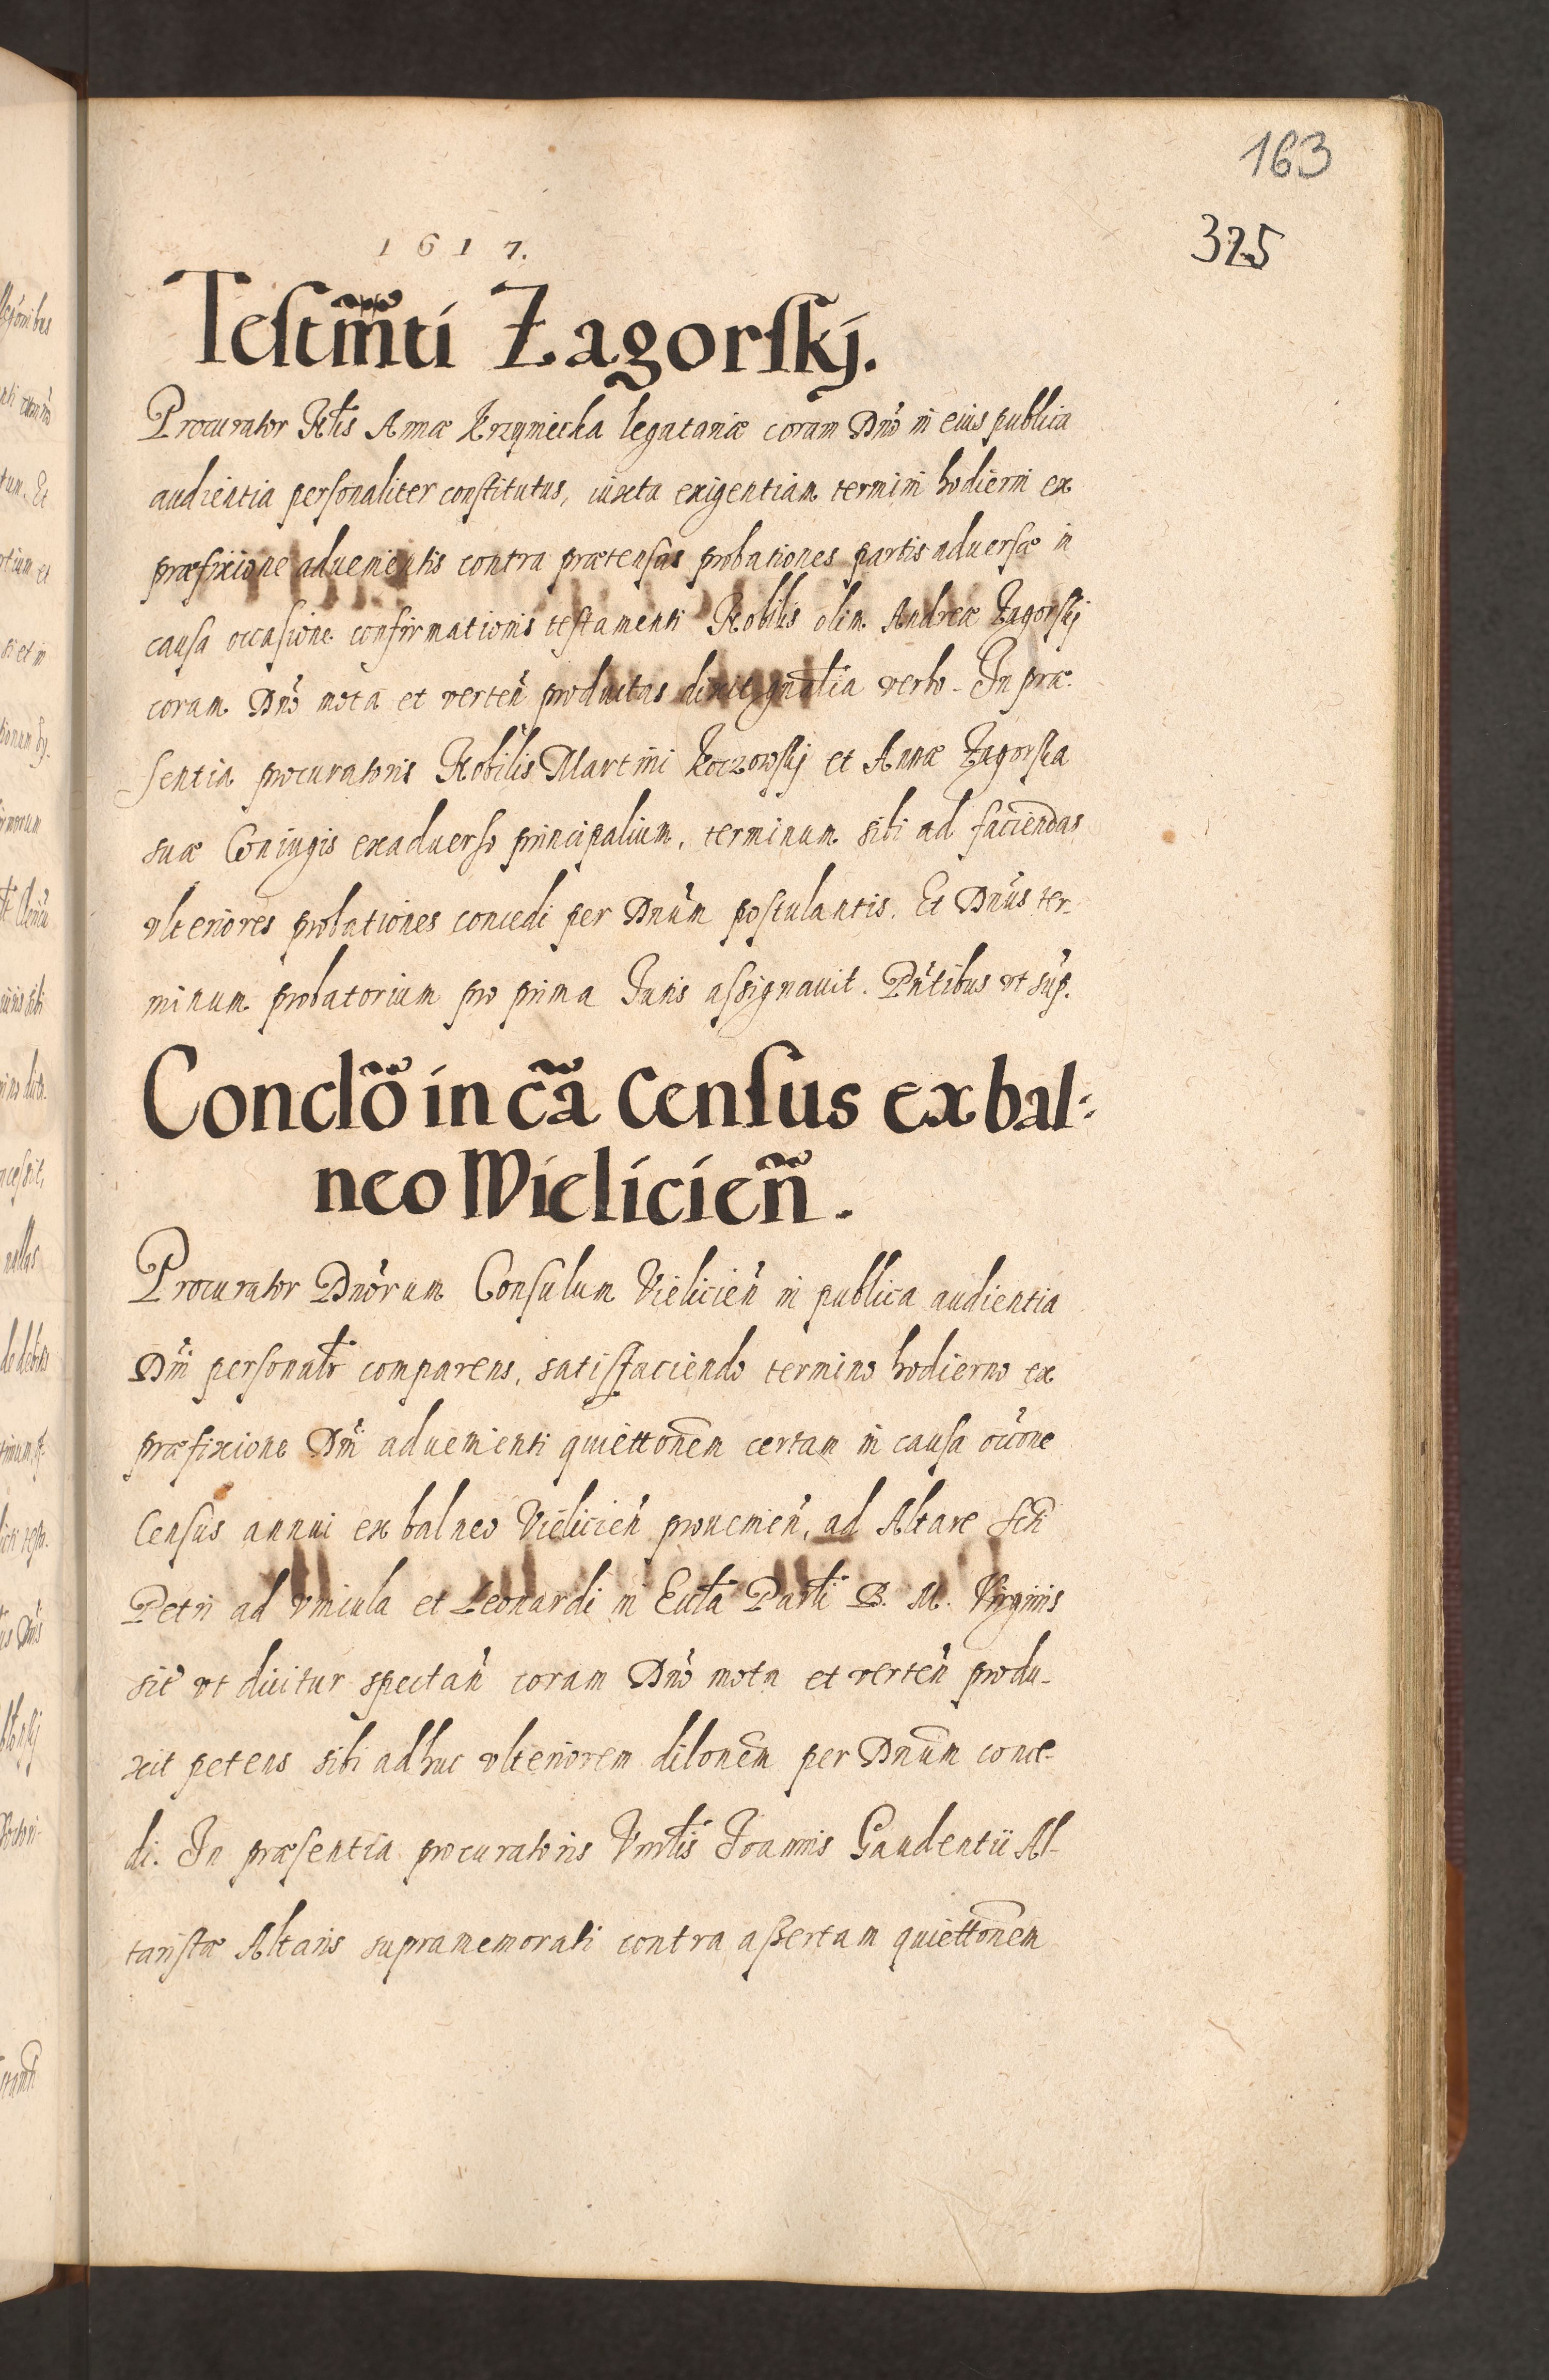 163
325
1617.
Testm̃ti Zagorskj.
Procurator Nlis Annæ Krzyniecka legatariæ coram Dno in eius publica
audientia personaliter constitutus, iuxta exigentiam termini hodierni ex
præfixione aduenientis contra prætensas probationes partis aduersæ in
causa occasione confirmationis testamenti Nobilis olim Andreæ Zagorskj
coram Dno mota et verten productas dixit gnalia verbo. In præ
sentia procuratoris Nobilis Martini Koczowskj et Annæ Zagorska
suæ Coniugis exaduerso principalium, terminum sibi ad faciendas
vlteriores probationes concedi per Dnum postulantis. Et Dnus ter-
minum probatorium pro prima Iuris assignauit. Pntibus vt sup.
Conclõ in cã Census ex bal:
neo Wielicień.
Procurator Dnorum Consulum Vielicień in publica audientia
Dni personalr comparens, satisfaciendo termino hodierno ex
præfixione Dni aduenienti quiettonem certam in causa occone
Census annui ex balneo Vielicień prouenień, ad Altare Scti
Petri ad vincula et Leonardi in Eccla Parli B. M. Virginis
sic vt dicitur spectań coram Dno mota et verteń produ-
xit petens sibi adhuc vlteriorem dilonem per Dnum conce-
di. In præsentia procuratoris Vnrlis Joannis Gaudentii Al-
taristæ Altaris supramemorati contra assertam quiettonem